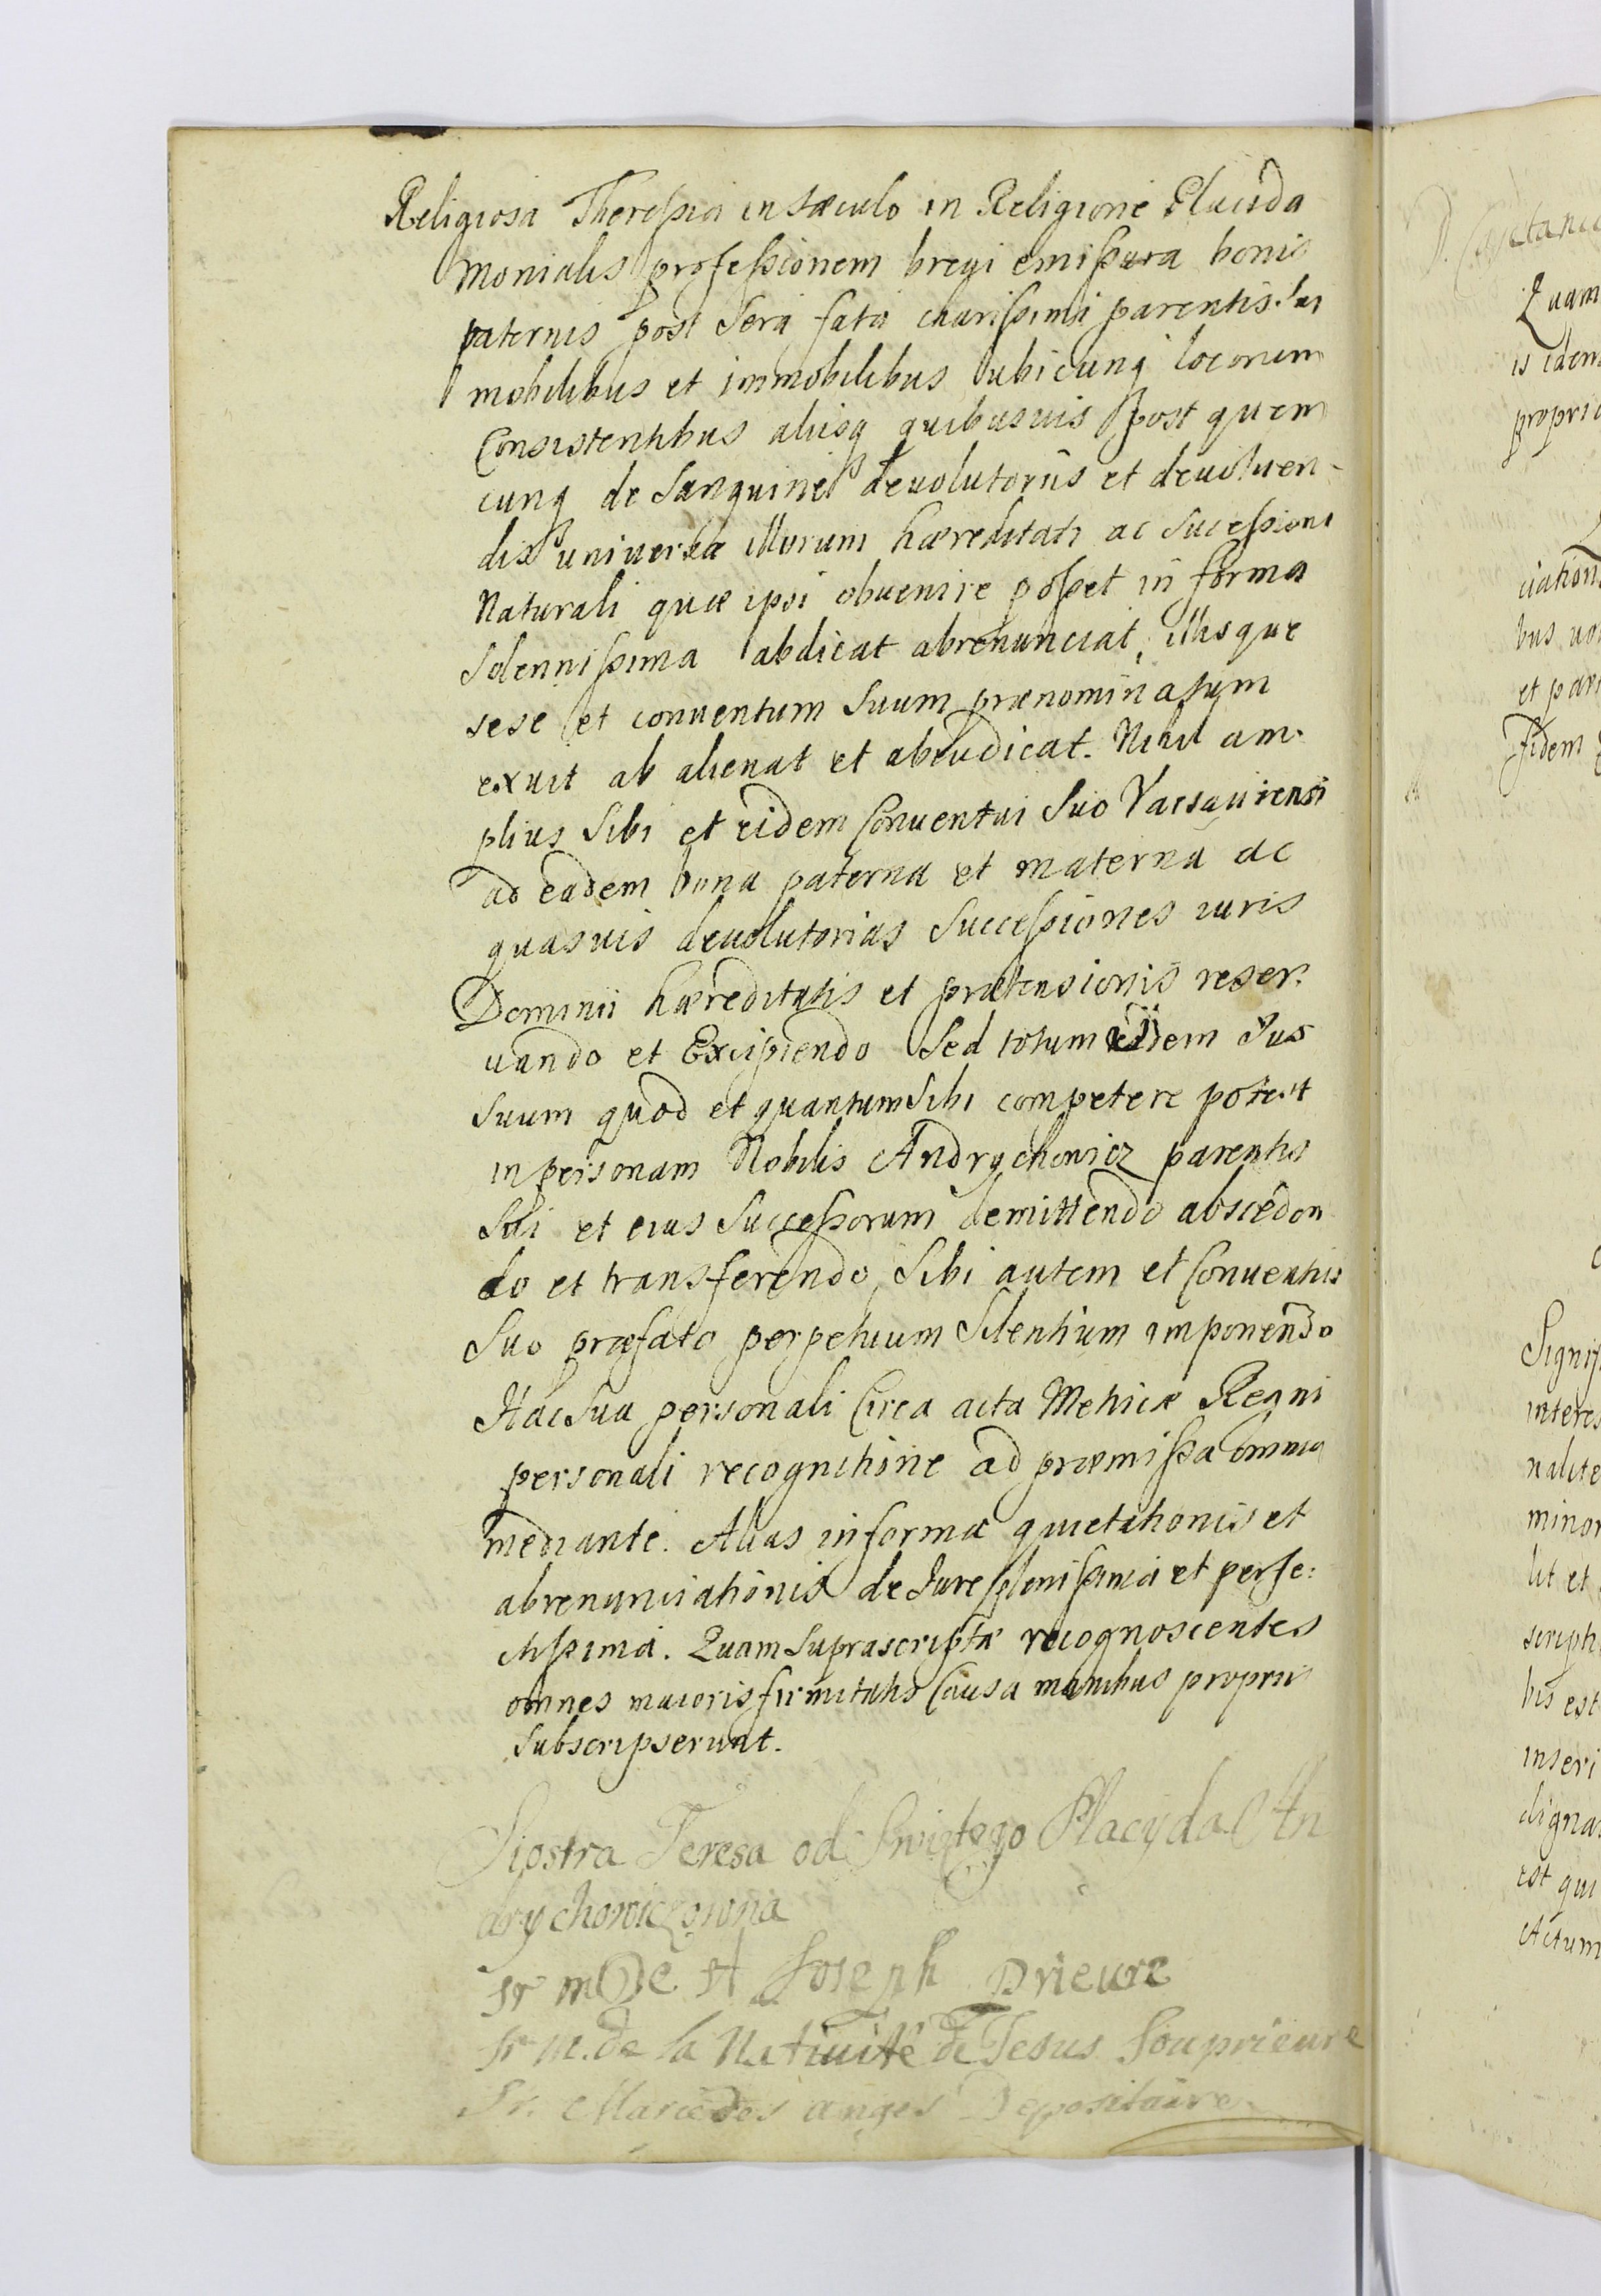 Religiosa Theressia in sæculo in Religione Placida
Monialis professionem brevi emissura bonis
paternis post sera fata charissimi parentis sui
mobilibus et immobilibus ubicunq locorum
Consistentibus aliisq quibusvis post quem
cunq de Sanguine devolutoriis et devoluen-
dis universæ illorum hæreditati ac sucessioni
Naturali quæ ipsi obuenire posset in forma
Solennissima abdicat abrenunciat, illisque
sese et conuentum Suum prænominatum
exuit ab alienat et abiudicat. Nihil am-
plius Sibi et eidem Conuentui Suo Varsauiensi
ad eadem bona paterna et materna ac
quasuis deuolutorias Successiones iuris
Dominii hæreditatis et prætensionis reser-
uando et Excipiendo Sed totum eidem Jus
Suum quod et quantum Sibi competere potest
in personam Nobilis Andrychowicz parentis
Sui et eius Successorum demittendo absceden
do et transferendo, Sibi autem et Conuentui
Suo præfato perpetuum Silentium imponendo
Hac Sua personali Circa acta Metrices Regni
personali recognitione ad præmissa omnia
mediante. Alias in forma quietationis et
abrenunciationis de Jure plenissima et perfe:
ctissima. Quam Suprascriptæ recognoscentes
omnes maioris firmitatis Causa manibus propriis
Subscripserunt.
Siostra Teresa od Swiętego Placyda An
drychowiczowna
Sr M De St Joseph Prieure
Sr M. de la Natiuité de Jesus Souprieure
Sr. Marie des anges Depositaire
D.
Quam
is idem
propri
ciation
bus
et par
fidem
Signif
interes
nalite
minor
lit et
script
bis est
inseri
digna
est qui
Actum